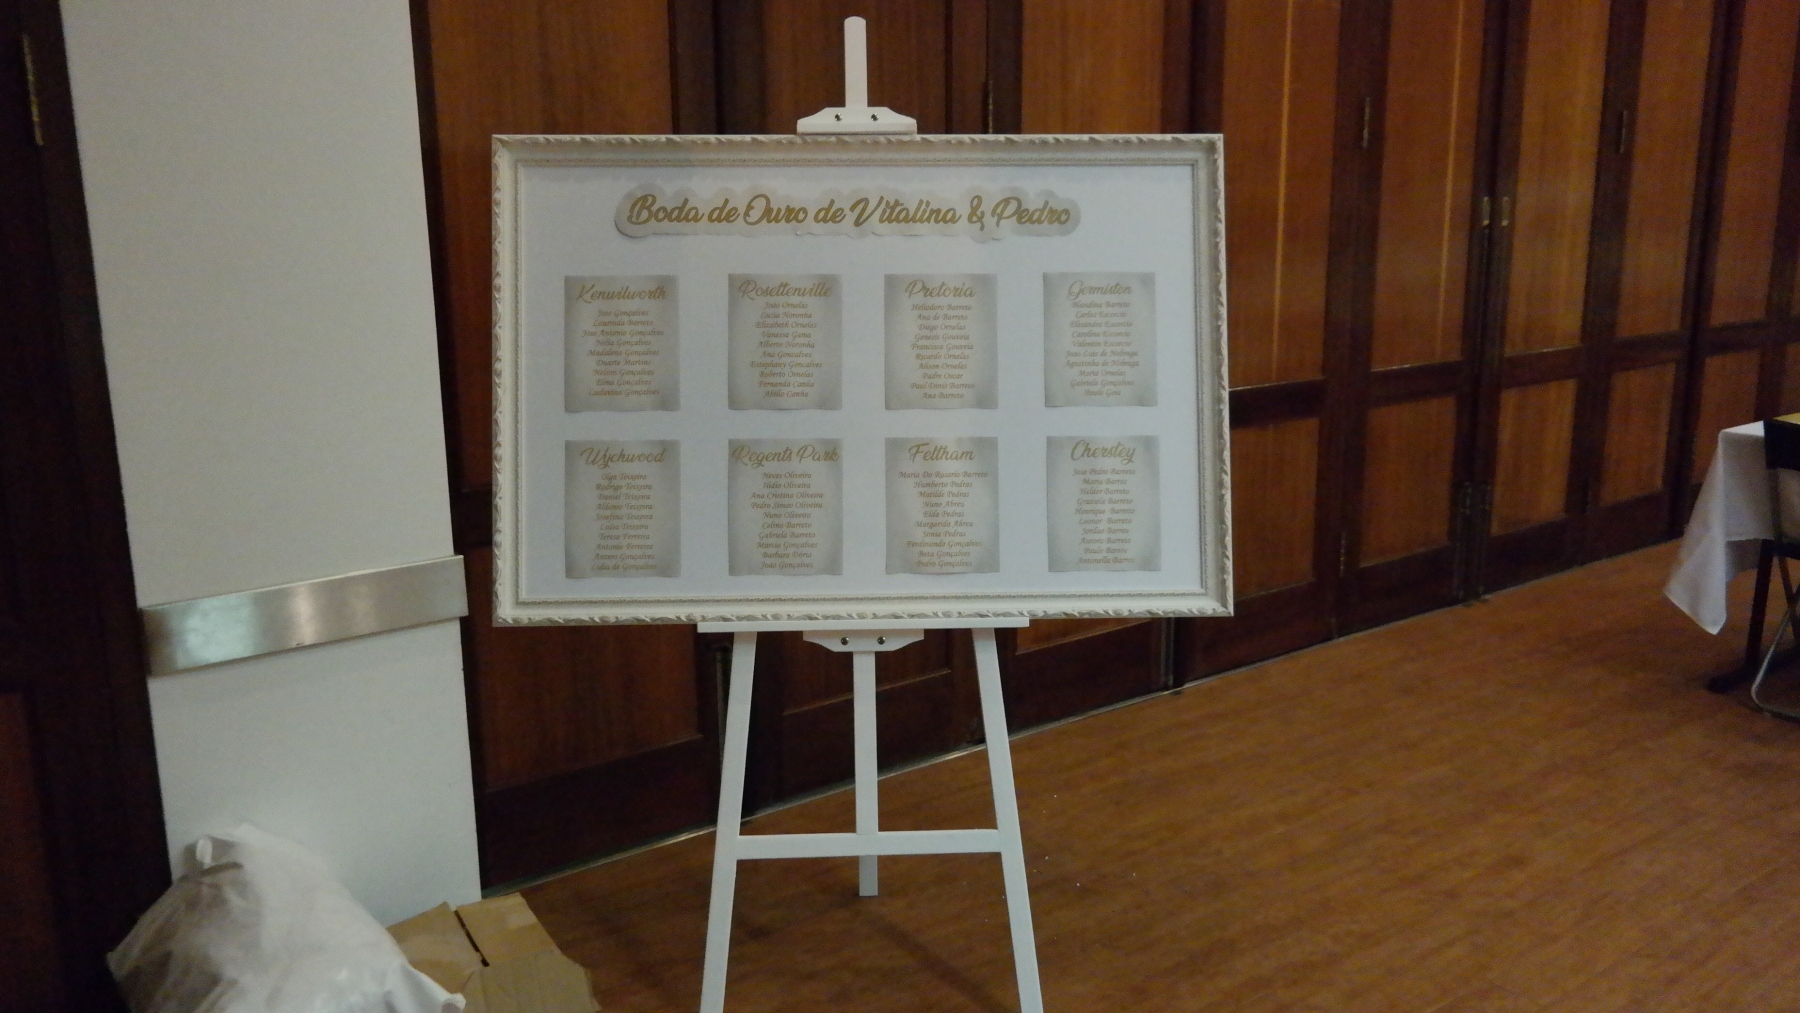 Boda de Ouro de Vitalina & Pedro
Kenwilworth
Jose Gonçalves
Laurinda Barreto
Jose Antonio Gonçalves
Nelia Gonçalves
Madalena Gonçalves
Duarte Martins
Nelson Gonçalves
Gonçalves
Gonçalves
Rosettenville
João Ornelas
Lucia Noronha
Elizabeth Ornelas
Vanessa Gama
Alberto Noronha
Ana Gonçalves
Estephany Gonçalves
Roberto Ornelas
Fernanda Canha
Abilio Canha
Pretoria
Heliodoro Barreto
Ana de Barreto
Diego Ornelas
Genesis Gouveia
Francisca Gouveia
Ricardo Ornelas
Alison Ornelas
Padre Oscar
Paul Ennis Barreto
Ana Barreto
Germiston
Blandina Barreto
Carlos Escorcio
Elisandra Escorcio
Carolina Escorcio
Valentim Escorcio
Joao Luis de Nobrega
de Nobrega
Maria Ornelas
Gabriela Gonçalves
Paulo Gois
Wychwood
Olga Teixeira
Rodrigo Teixeira
Daniel Teixeira
Aldonio Teixeira
Teixeira
Luisa Teixeira
Teresa Ferreira
Antonio Ferreira
Gonçalves
Lidia de Gonçalves
Regents Park
Neves Oliveira
Ilidio Oliveira
Ana Cristina Oliveira
Pedro Simao Oliveira
Nuno Oliveira
Celina Barreto
Gabriela Barreto
Marcio Gonçalves
Barbara Doria
João Gonçalves
Feltham
Maria Do Rosario Barreto
Humberto Pedras
Matilde Pedras
Nuno Abreu
Elda Pedras
Margarida Abreu
Sonia Pedras
Ferdinando Gonçalves
Beta Gonçalves
Pedro Gonçalves
Cherstey
Jose Pedro Barreto
Maria Barros
Helder Barreto
Graciela Barreto
Henrique Barreto
Leonor Barreto
Barros
Aurora Barreto
Paulo Barros
Antonella Barros